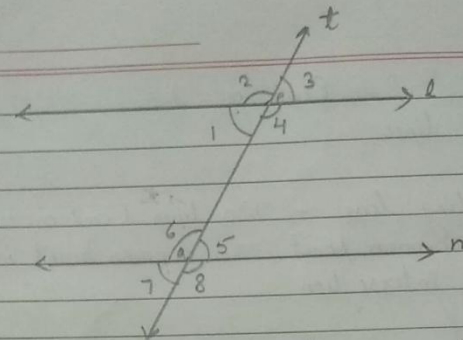 t
2 3
l
1 4
6 5
n
7 8